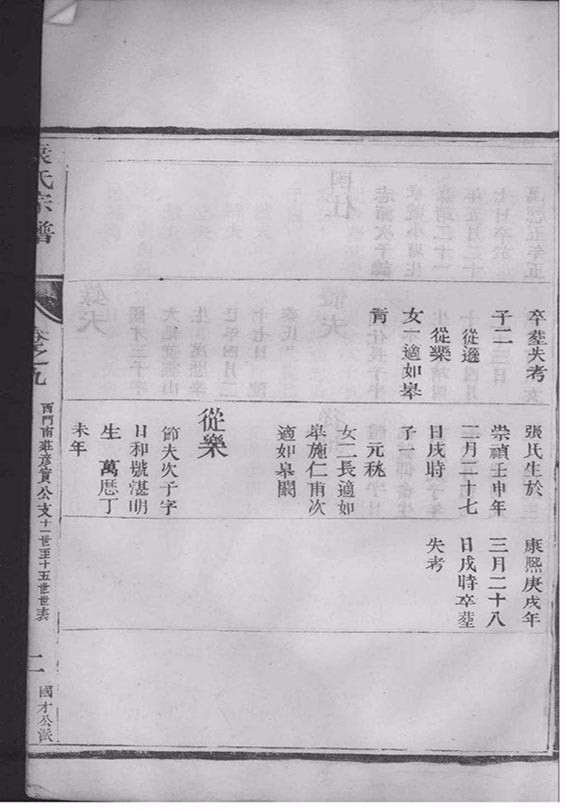 卒塟失考
子二
從遜
從樂
女一適如皋
張氏生於
崇禎壬申年
二月二十七
日戌時
子一
元
女二長適如
皋施仁甫次
適如皋闞
從樂
節夫次子字
日和號湛明
生 萬厯丁
未年
康熙庚戌年
三月二十八
日戌時卒塟
失考
袁氏宗譜
卷之九
西門南莊彥實公支十一世至十五世世表
二
國才公派